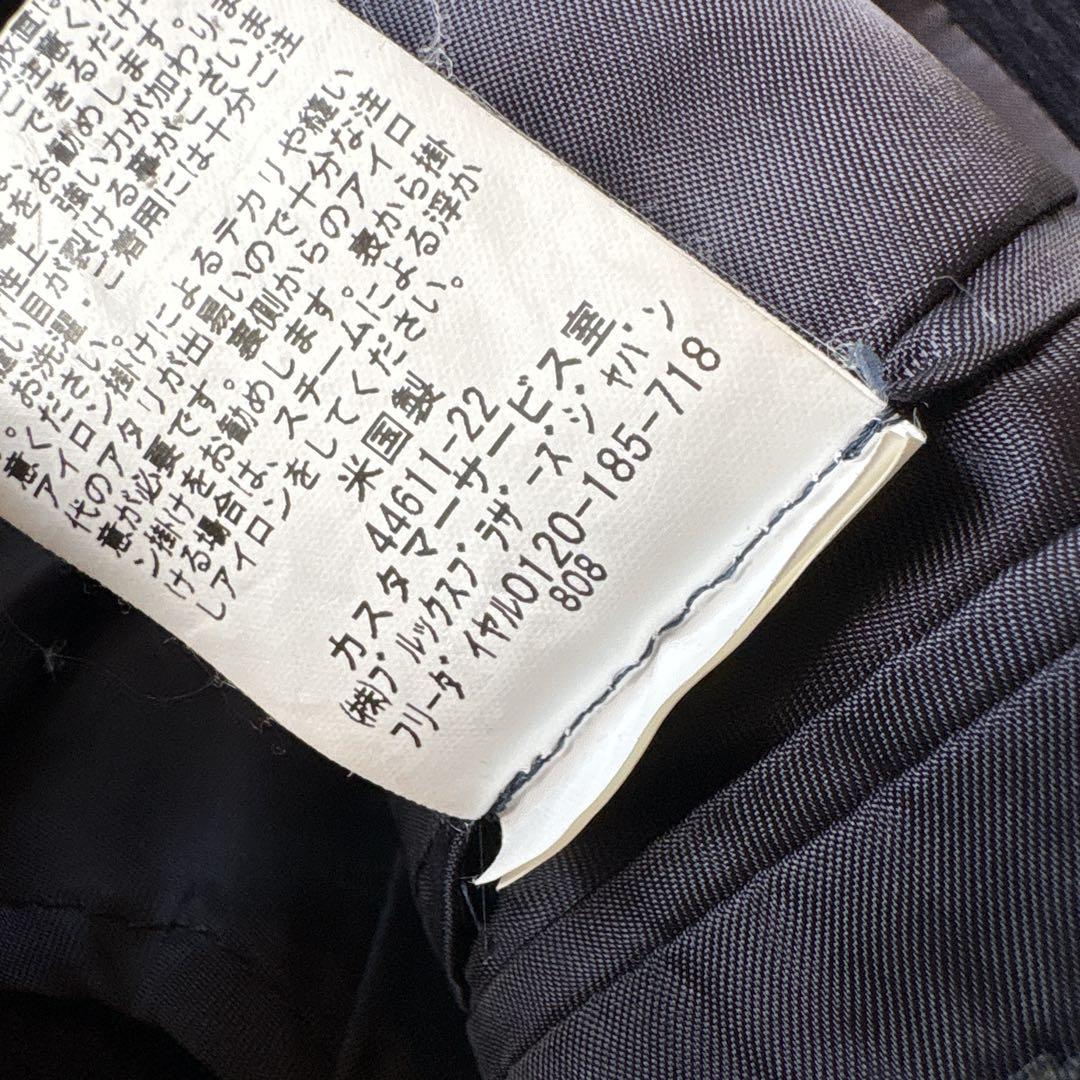 ご注意くだ
できるだけ
をお勧めします。
性上、強い力が加わりま
い目が裂ける事がございま
。お洗濯、ご着用には十分ご注
意ください。
アイロン掛けによるテカリや縫い
代のアタリが出易いので十分な注
意が必要です。裏側からのアイロ
ン掛けをお勧めします。表から掛
ける場合は、スチームによる浮か
しアイロンをしてください。
米国製
44611-22
カスタマーサービス室
㈱ブルックスブラザーズ・ジャパン
フリーダイヤル0120-185-718
808